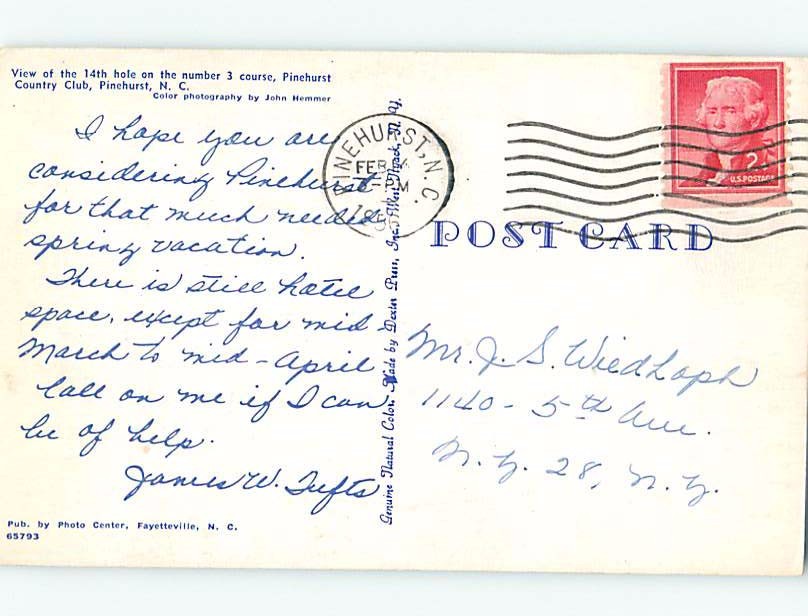 View of the 14th hole on the number 3 course, Pinehurst
Country Club, Pinehurst, N. C.
Color photography by John Hemmer
I hope you are
considering Pinehurst
for that much needed
spring vacation.
There is still hotel
space, except for mid
March to mid-April.
Call on me if I can
be of help.
James W. Tufts
Pub. by Photo Center, Fayetteville, N. C.
65793
Genuine Natural Color. Made by Dexter Press, Inc., West Nyack, N. Y.
PINEHURST, N.C.
FEB
PM
2¢
U.S. POSTAGE
POST CARD
Mr. J. S. Wiedhopf
1140 - 5th Ave.
N. Y. 28, N. Y.